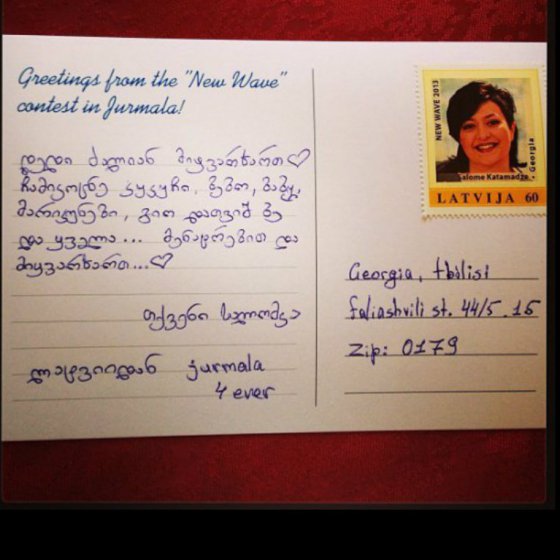 Greetings from the "New Wave"
contest in Jurmala!
დედი ძალიან მიყვარხართ♡
ჩამიკოცნე კუკური, ბებო, ბაბუ,
და ყველა... მენატრებით და
მიყვარხართ...♡
თქვენი სალომკა
ლატვიიდან jurmala
4 ever
NEW WAVE 2013
Salome Katamadze • Georgia
LATVIJA 60
Georgia, tbilisi
faliashvili st. 44/5. 15
Zip: 0179